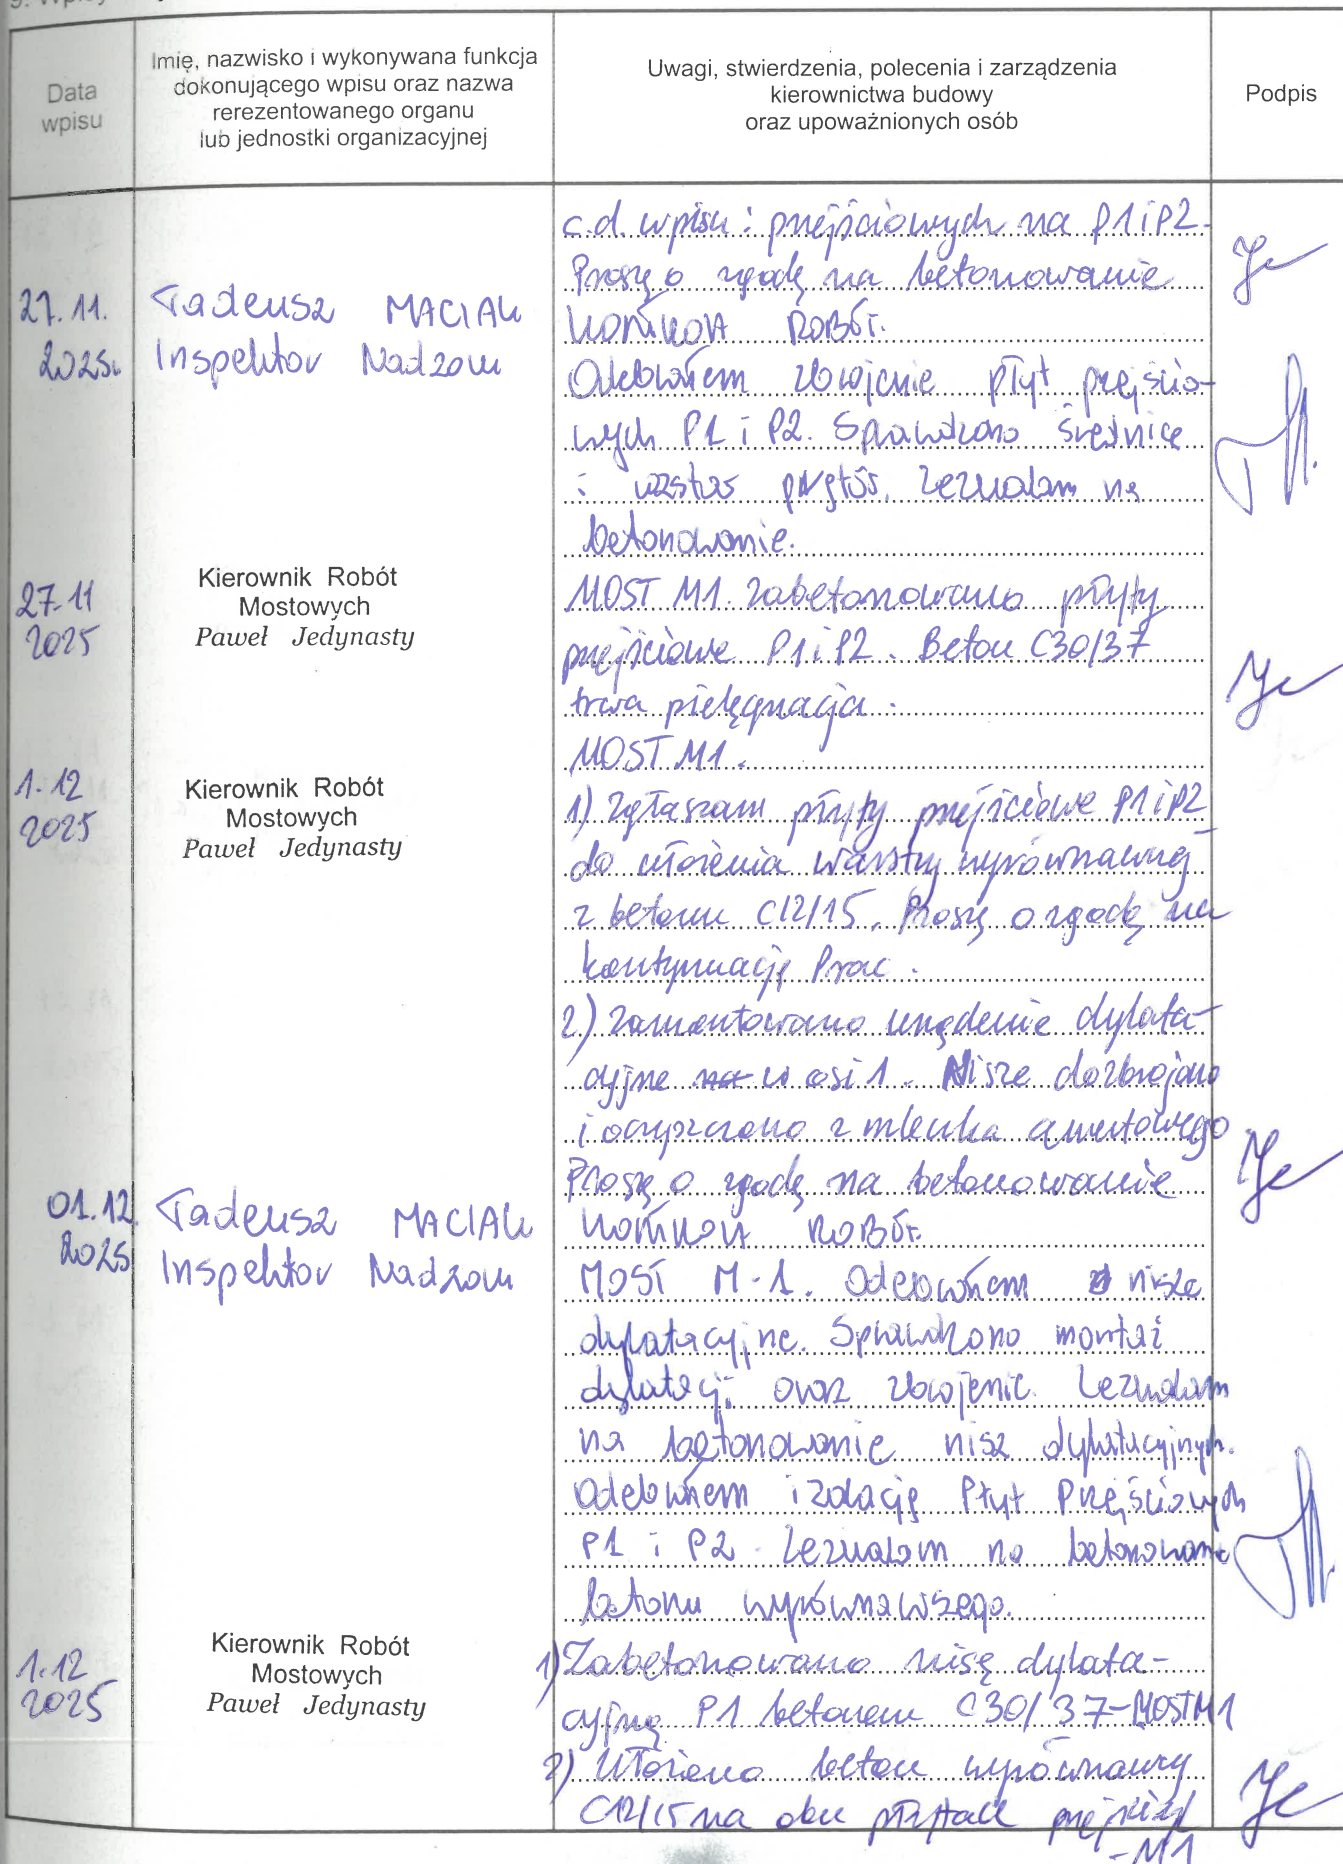 Data
wpisu
Imię, nazwisko i wykonywana funkcja
dokonującego wpisu oraz nazwa
rerezentowanego organu
lub jednostki organizacyjnej
Uwagi, stwierdzenia, polecenia i zarządzenia
kierownictwa budowy
oraz upoważnionych osób
Podpis
c.d. wpisu: przejściowych na P1 i P2.
Proszę o zgodę na betonowanie
27.11.
2025r.
Tadeusz MACIAK
Inspektor Nadzoru
KONIKOWA ROBÓT.
Odebrałem zbrojenie płyt przejścio-
wych P1 i P2. Sprawdzono średnice
i rozstaw prętów. Zezwalam na
betonowanie.
27.11
2025
Kierownik Robót
Mostowych
Paweł Jedynasty
MOST M1. Zabetonowano płyty
przejściowe P1 i P2. Beton C30/37
trwa pielęgnacja.
1.12
2025
Kierownik Robót
Mostowych
Paweł Jedynasty
MOST M1.
1) Zgłaszam płyty przejściowe P1 i P2
do ułożenia warstwy wyrównawczej
z betonu C12/15. Proszę o zgodę na
kontynuację Prac.
2) Zamontowano urządzenie dylata-
cyjne w osi 1. Nisze dozbrojono
i oczyszczono z mleczka cementowego
Proszę o zgodę na betonowanie
01.12.
2025
Tadeusz MACIAK
Inspektor Nadzoru
ROBÓT.
MOST M-1. Odebrałem nisze
dylatacyjne. Sprawdzono montaż
dylatacji oraz zbrojenie. Zezwalam
na betonowanie nisz dylatacyjnych.
Odebrałem izolację Płyt Przejściowych
P1 i P2. Zezwalam na betonowanie
betonu wyrównawczego.
1.12
2025
Kierownik Robót
Mostowych
Paweł Jedynasty
1) Zabetonowano niszę dylata-
cyjną P1 betonem C30/37-MOST M1
2) Ułożono beton wyrównawczy
C12/15 na obu płytach przejściowych
-M1